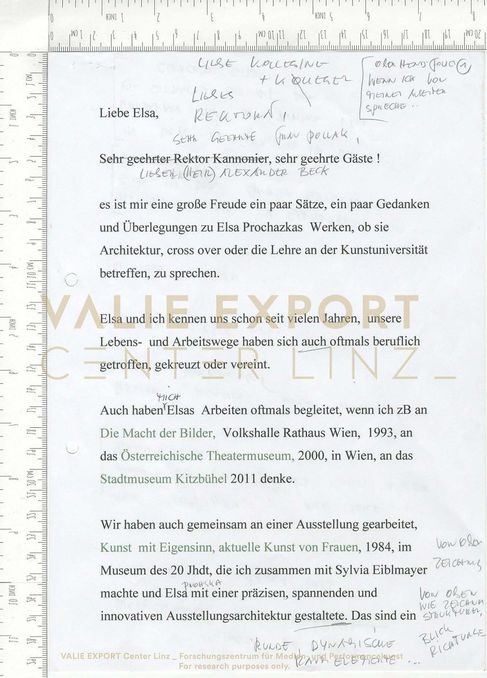 LIEBE KOLLEGINE
+ KOLLEGEN
LIEBES
REKTORAT,
WENN ICH VON
MEINEN ARBEITEN
SPRECHE ...
Liebe Elsa,
SEHR GEEHRTE FRAU POLLAK,
Sehr geehrter Rektor Kannonier, sehr geehrte Gäste !
LIEBER (HERR) ALEXANDER BECK
es ist mir eine große Freude ein paar Sätze, ein paar Gedanken
und Überlegungen zu Elsa Prochazkas Werken, ob sie
Architektur, cross over oder die Lehre an der Kunstuniversität
betreffen, zu sprechen.
VALIE EXPORT
CENTER LINZ_
Elsa und ich kennen uns schon seit vielen Jahren, unsere
Lebens- und Arbeitswege haben sich auch oftmals beruflich
getroffen, gekreuzt oder vereint.
MICH
Auch haben Elsas Arbeiten oftmals begleitet, wenn ich zB an
Die Macht der Bilder, Volkshalle Rathaus Wien, 1993, an
das Österreichische Theatermuseum, 2000, in Wien, an das
Stadtmuseum Kitzbühel 2011 denke.
Wir haben auch gemeinsam an einer Ausstellung gearbeitet,
Kunst mit Eigensinn, aktuelle Kunst von Frauen, 1984, im
ZEICHNUNG
Museum des 20 Jhdt, die ich zusammen mit Sylvia Eiblmayer
machte und Elsa mit einer präzisen, spannenden und
VON OBEN
WIE ZEICHNUNG
innovativen Ausstellungsarchitektur gestaltete. Das sind ein
BLICK
RICHTUNGE
RUNDE DYNAMISCHE
RAUM ELEMENTE ...
VALIE EXPORT Center Linz _ Forschungszentrum für Medien- und Performancekunst
For research purposes only.